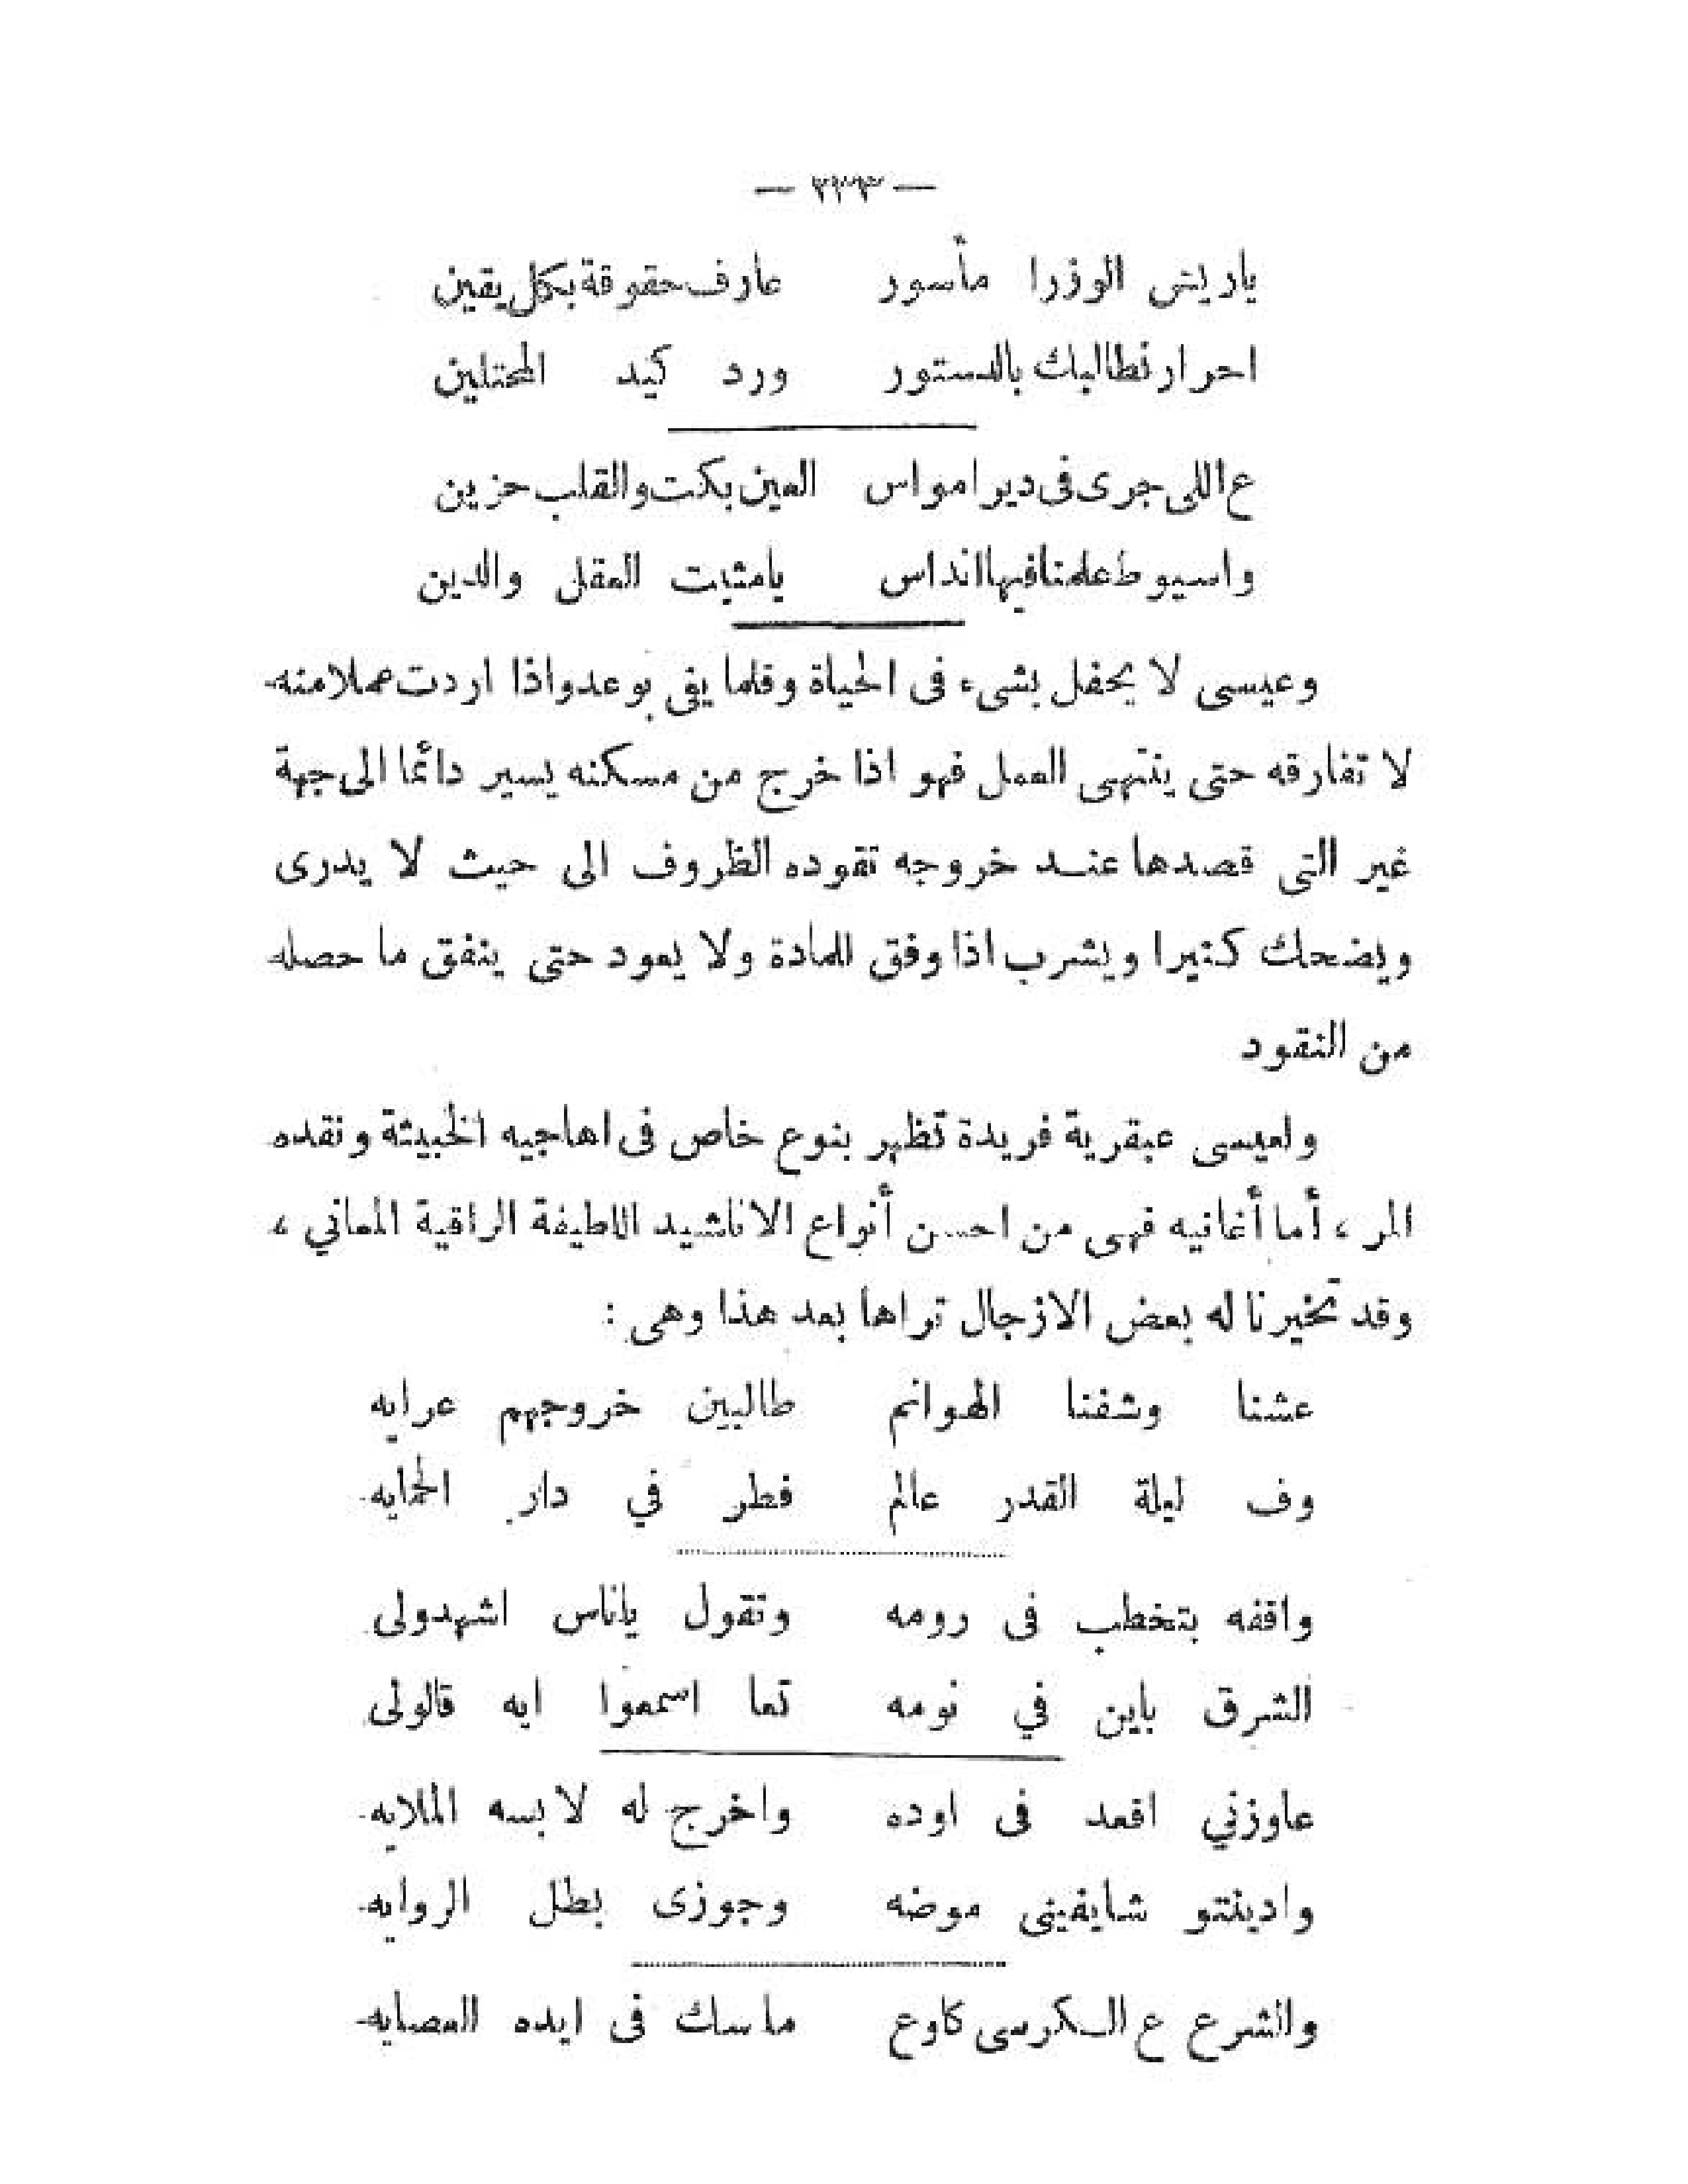 — ٣٢٣ —
ياريتس الوزرا مأسور عارف حقوقة بكل يقين
احرار نطالبك بالدستور ورد كيد المحتلين
ع اللى جرى فى دير امواس العين بكت والقلب حزين
واسيوط علمنا فيها انداس يامثبت العقل والدين
وعيسى لا يحفل بشىء فى الحياة وقلما يفى بوعد واذا اردت عملا منه
لا تفارقه حتى ينتهى العمل فهو اذا خرج من مسكنه يسير دائما الى جهة
غير التى قصدها عند خروجه تقوده الظروف الى حيث لا يدرى
ويضحك كثيرا ويشرب اذا وفق للمادة ولا يعود حتى ينفق ما حصله
من النقود
ولعيسى عبقرية فريدة تظهر بنوع خاص فى اهاجيه الخبيثة ونقده
المر ، أما أغانيه فهى من احسن أنواع الاناشيد اللطيفة الراقية المعاني ،
وقد تخيرنا له بعض الازجال تراها بعد هذا وهى :
عشنا وشفنا الهوانم طالبين خروجهم عرايه
وف ليلة القدر عالم فطر في دار الحمايه
واقفه بتخطب فى رومه وتقول ياناس اشهدولى
الشرق باين في نومه تعا اسمعوا ايه قالولى
عاوزني اقعد فى اوده واخرج له لابسه الملايه
واديتتو شايفينى موضه وجوزى بطل الروايه
والشرع ع الكرسى كاوع ماسك فى ايده العصايه